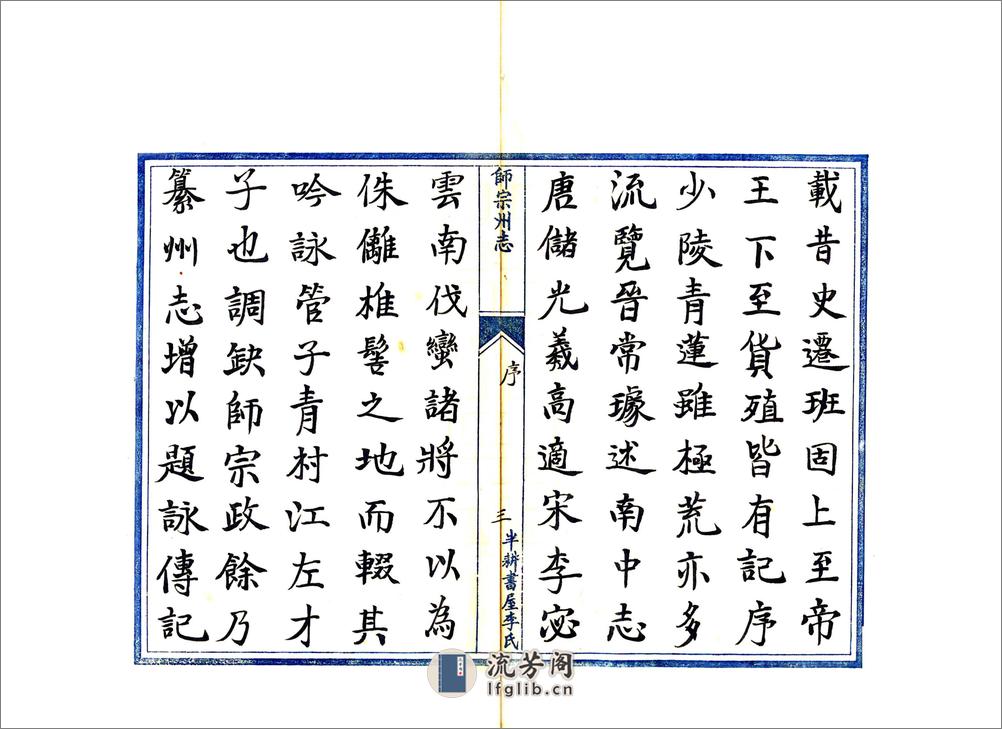 載昔史遷班固上至帝
王下至貨殖皆有記序
少陵青蓮雖極荒亦多
流覽晉常璩述南中志
唐儲光羲高適宋李宓
師宗州志
序
三
半耕書屋李氏
雲南伐蠻諸將不以為
侏離椎髻之地而輟其
吟詠管子青村江左才
子也調缺師宗政餘乃
纂州志增以題詠傳記
流芳阁
lfglib.cn